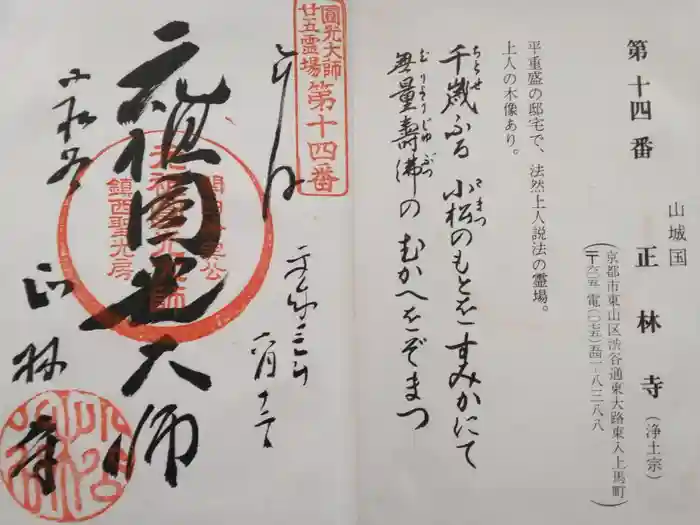 第十四番
山城国
正林寺(浄土宗)
京都市東山区渋谷通東大路東入上馬町
(〒六〇五 電(〇七五)五四一-八三八八
平重盛の邸宅で、法然上人説法の霊場。
上人の木像あり。
千歳ふる 小松のもとを すみかにて
ちとせ
こまつ
無量壽佛の むかへをぞまつ
むりょうじゅぶつ
圓光大師
廿五霊場 第十四番
奉拝
元祖圓光大師
鎮西聖光房
小松谷
正林寺